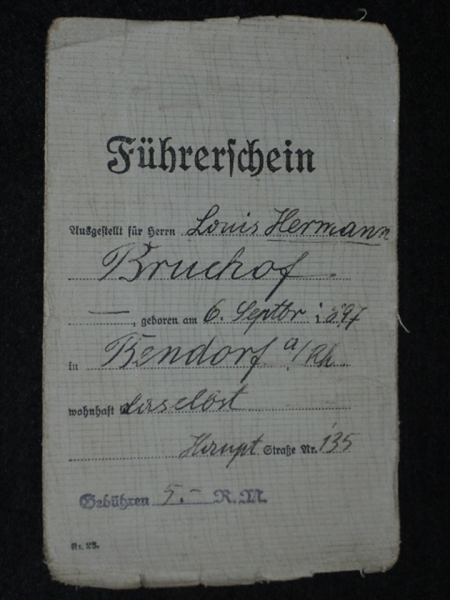 Führerschein
Ausgestellt für Herrn Louis Hermann
Bruchof
—, geboren am 6. Septbr 1897
in Bendorf a/Rh.
wohnhaft daselbst
Haupt Straße Nr. 135
Gebühren 5.- R.M.
Nr. 23.